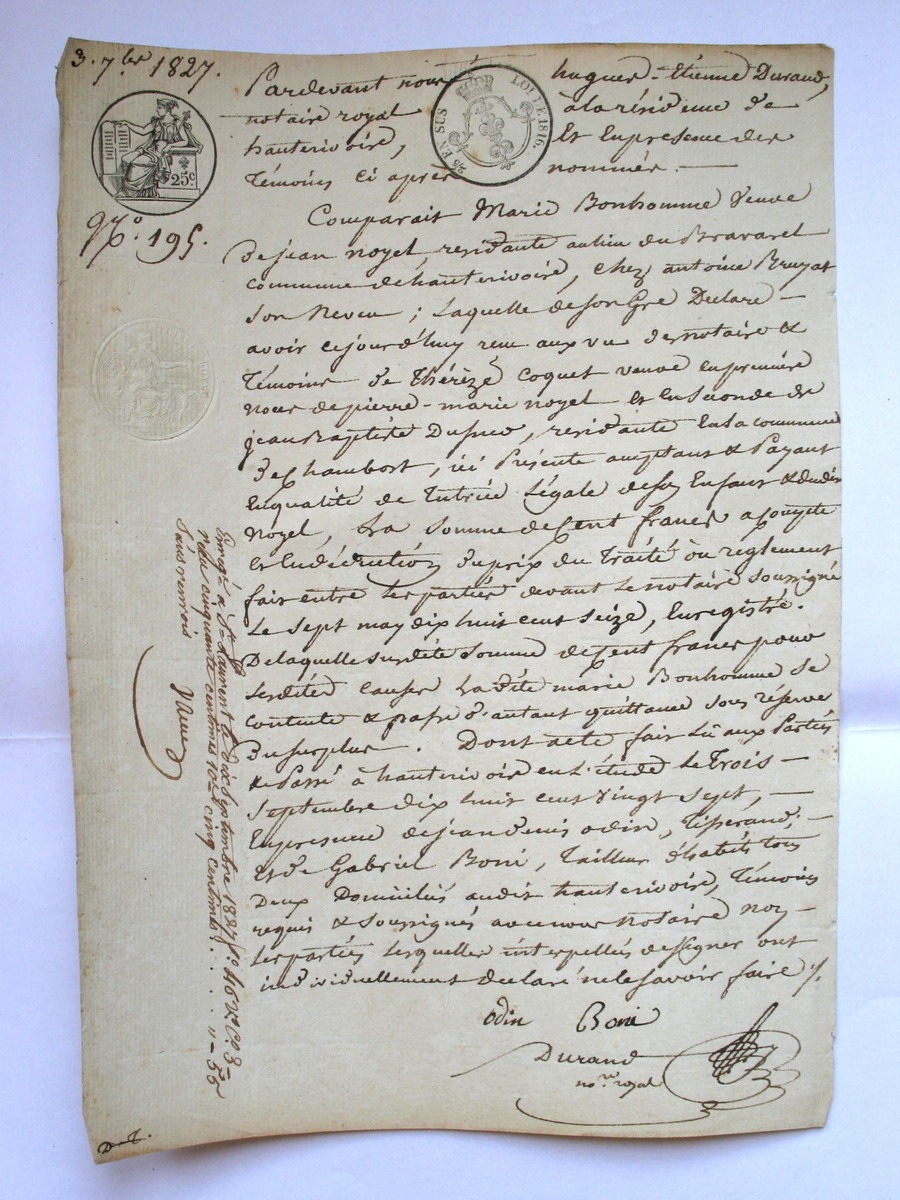 3. 7bre 1827.
Pardevant nous hugues-Etienne Durand,
notaire royal à la résidence de
hauterivoire, Et En presence des
Témoins Ci après nommés. —
25 EN SUS
LOI DE 1816.
25c
No. 195.
Comparait Marie Bonhomme Veuve
De jean Noyel, residante au lieu du Bravaret
Commune de hauterivoire, chez antoine Bruyat
Son Neveu; Laquelle de son Gré Declare —
avoir cejourd'huy recu aux vu de notaire &
Témoins De Thérèze Coquet veuve en première
Noces de pierre-marie Noyel et en Seconde de
jean Baptiste, residante En la commune
De Chambost, ici Présente acceptant & Payant
En qualité de Tutrice Légale de ses Enfans & dudit
Noyel, La Somme de Cent francs a compte
et En déduction du prix du Traité ou reglement
fait entre les parties devant le notaire Soussigné
Le Sept may dix huit cent Seize, Enregistré.
De laquelle Surdite Somme de Cent francs pour
Lesdites Causes La dite marie Bonhomme Se
Contente & passe d'autant quittance sous réserve
du surplus. Dont acte fait Lu aux Parties
& Passé à hauterivoire en L'étude Le Trois —
Septembre dix huit cent vingt Sept, —
En presence de jean denis odin, Tisserand, —
et De Gabriel Boni, Tailleur d'habits tous
Deux Domiciliés audit hauterivoire, Témoins
requis & Soussignés avec nous Notaire Non —
Les parties Lesquelles interpellés de Signer ont
individuellement declaré ne le Savoir faire
odin Boni
Durand
nore royal
Enregé à St Laurent le dix Septembre 1827 fo 46 Vo C. 3
reçu cinquante centimes 10me cinq centimes . . . . . " - 55
Sans renvois